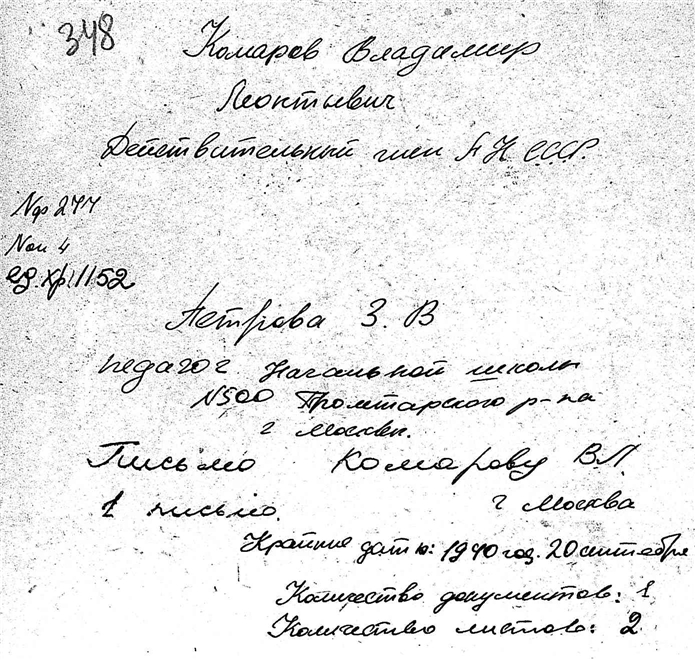 348
Комаров Владимир
Леонтьевич
Действительный член АН СССР.
Nф 277
Nоп 4
ед.хр.1152
Петрова З. В
педагог Начальной школы
N500 Пролетарского р-на
г Москвы.
Письмо Комарову В.Л.
1 письмо.
г Москва
Крайние даты: 1940 год. 20 сентября
Количество документов: 1
Количество листов: 2